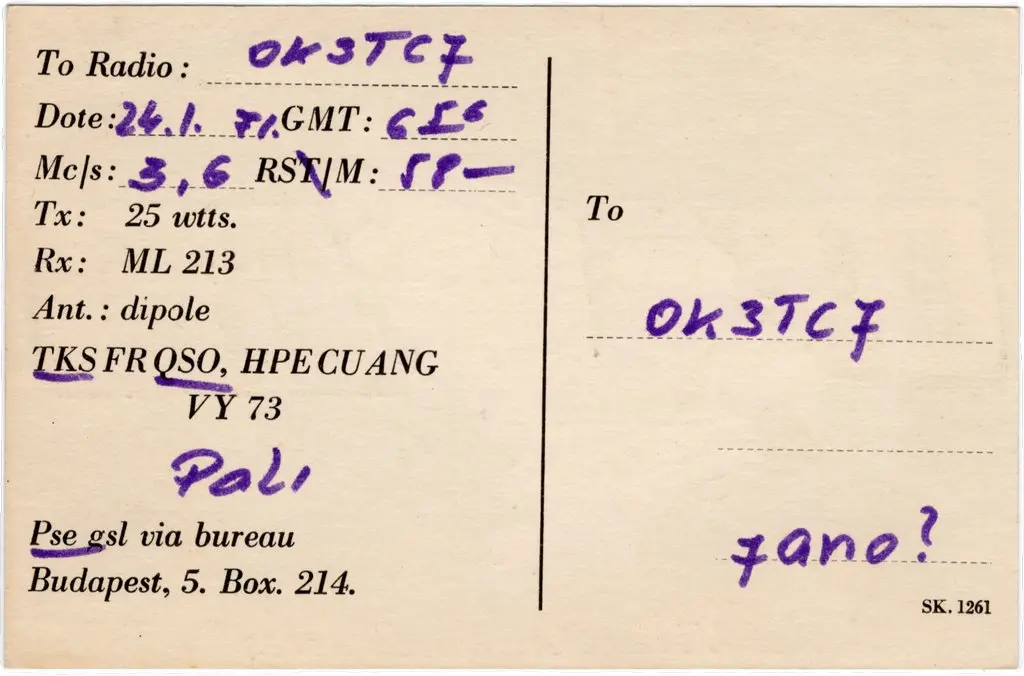 To Radio: OK3TCJ
Dote: 24.1. 71. GMT: 656
Mc/s: 3,6 RST/M:
Tx: 25 wtts.
Rx: ML 213
Ant.: dipole
TKS FR QSO, HPE CUANG
VY 73
Pali
Pse gsl via bureau
Budapest, 5. Box. 214.
To
OK3TCJ
Jano?
SK. 1261